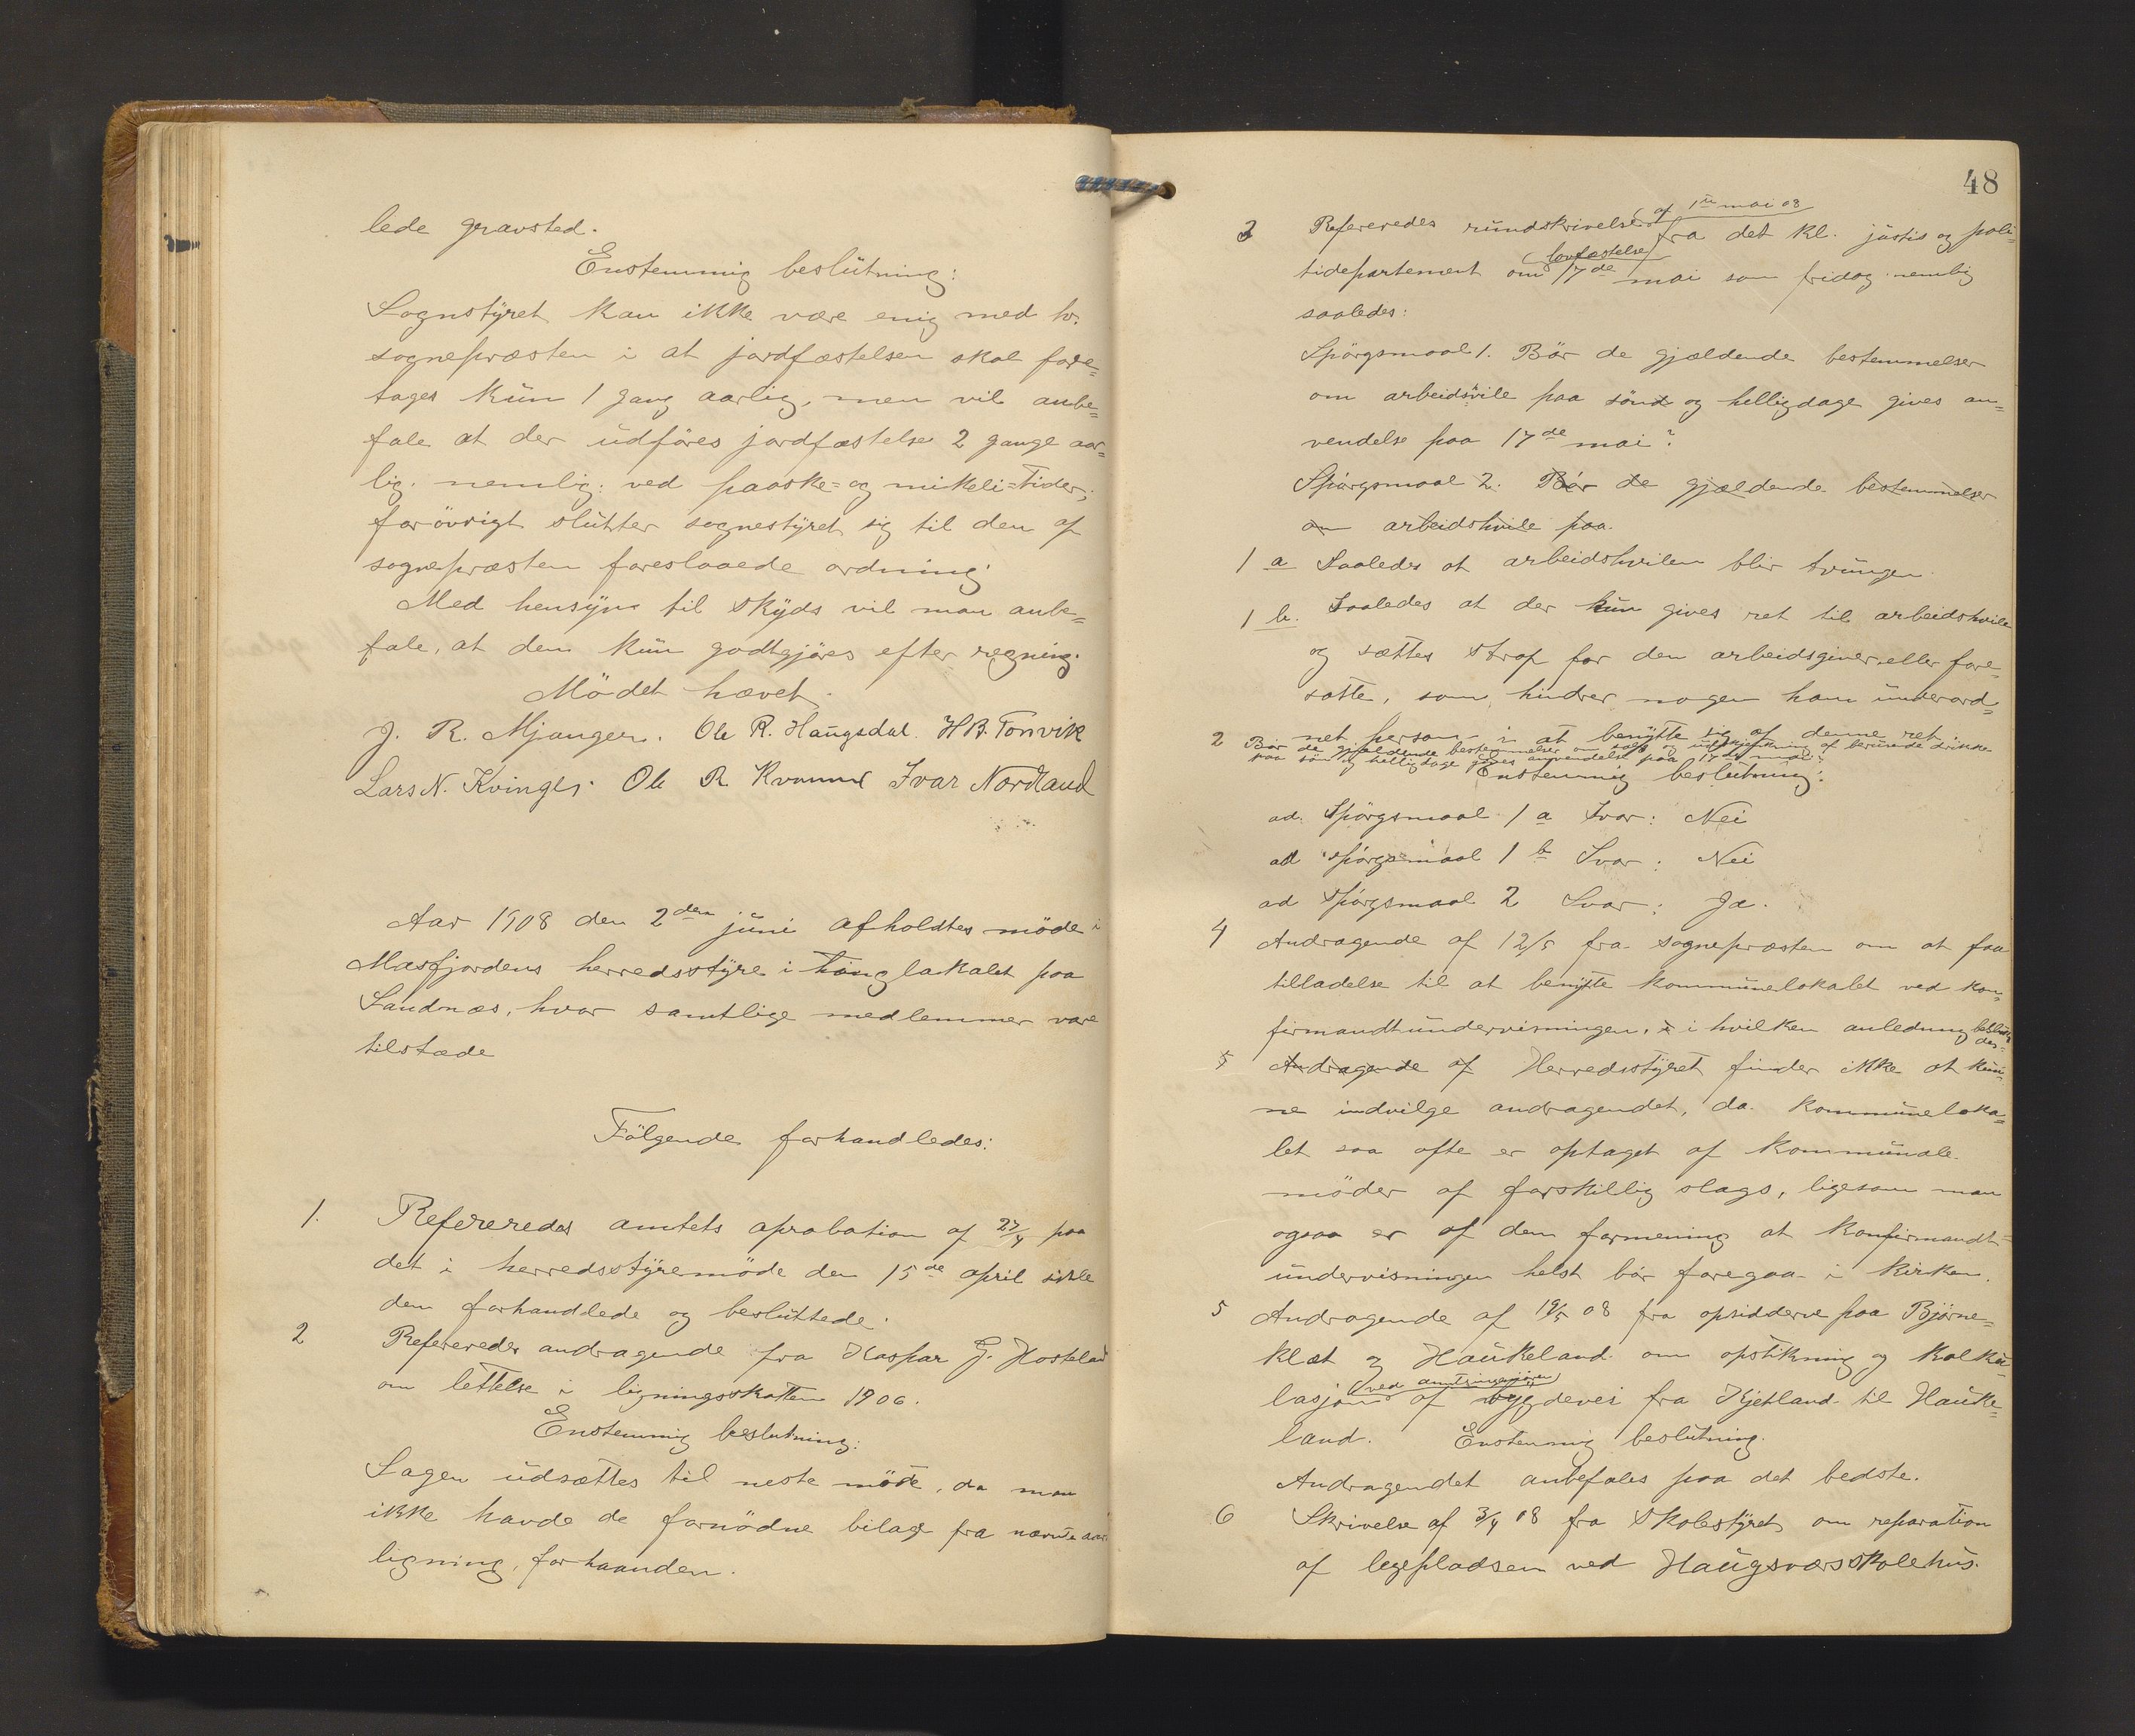 lede gravsted.
Enstemmig beslutning:
Sognstyret kan ikke være enig med hr.
sognepræsten i at jordfæstelsen skal fore=
tages kun 1 gang aarlig, men vil anbe=
fale at der udføres jordfæstelse 2 gange aar=
lig. nemlig: ved paaske= og mikeli=tider;
forøvrigt slutter sognestyret sig til den af
sognepræsten foreslaaede ordning.
Med hensyn til skyds vil man anbe=
fale, at den kun godtgjøres efter regning.
Mödet hævet.
J. R. Mjanger. Ole R. Haugsdal. H B. Tonvik
Lars N. Kvinge. Ole R Kvamme Ivar Nordland
Aar 1908 den 2den juni afholdtes möde i
Masfjordens herredsstyre i tinglokalet paa
Sandnæs, hvor samtlige medlemmer vare
tilstæde
Fölgende forhandledes:
1. Refereredes amtets aprobation af 27/4 paa
det i herredsstyremöde den 15de april sidste
den forhandlede og besluttede.
2 Refereredes andragende fra Kaspar G. Hosteland
om lettelse i ligningsskatten 1906.
Enstemmig beslutning:
Sagen udsættes til neste möde, da man
ikke havde de fornödne bilage fra nævnte aars
ligning, forhaanden.
48
af 1ste mai 08
3 Refereredes rundskrivelse fra det kl. justis og poli=
lovfæstelse
tidepartement om 17de mai som fridag nemlig
saaledes:
Spörgsmaal 1. Bör de gjældende bestemmelser
om arbeidsvile paa sönd og helligdage gives an=
vendelse paa 17de mai?
Spörgsmaal 2. Bör de gjældende bestemmelser
om arbeidshvile paa
1 a Saaledes at arbeidshvilen blir tvungen
1 b. Saaledes at der kun gives ret til arbeidshvile
og sættes straf for den arbeidsgiver eller fore=
satte, som hindrer nogen ham underord=
net person i at benytte sig af denne ret.
2 Bör de gjældende bestemmelser om salg og udskjenkning af berusende drikke
paa sön og helligdage gives anvendelse paa 17de mai?
Enstemmig beslutning:
ad Spörgsmaal 1 a Svar: Nei
ad spörgsmaal 1 b Svar: Nei
ad Spörgsmaal 2 Svar: Ja.
4 Andragende af 12/5 fra sognepræsten om at faa
tilladelse til at benytte kommunelokalet ved kon=
firmandtundervisningen, i hvilken anledning beslutte
des=
5 Andragende af Herredsstyret finder ikke at kun=
ne indvilge andragendet, da kommuneloka=
let saa ofte er optaget af kommunale
möder af forskillig slags, ligesom man
ogsaa er af den formening at konfirmandt=
undervisningen helst bör foregaa i kirken.
5 Andragende af 19/5 08 fra opsidderne paa Björne=
klæt og Haukeland om opstikning og kalku=
ved amtsingeniören
lasjon af bygdevei fra Kjetland til Hauke=
land. Enstemmig beslutning.
Andragendet anbefales paa det bedste.
6 Skrivelse af 3/4 08 fra skolestyret om reparation
af legepladsen ved Haugsværs skolehus.